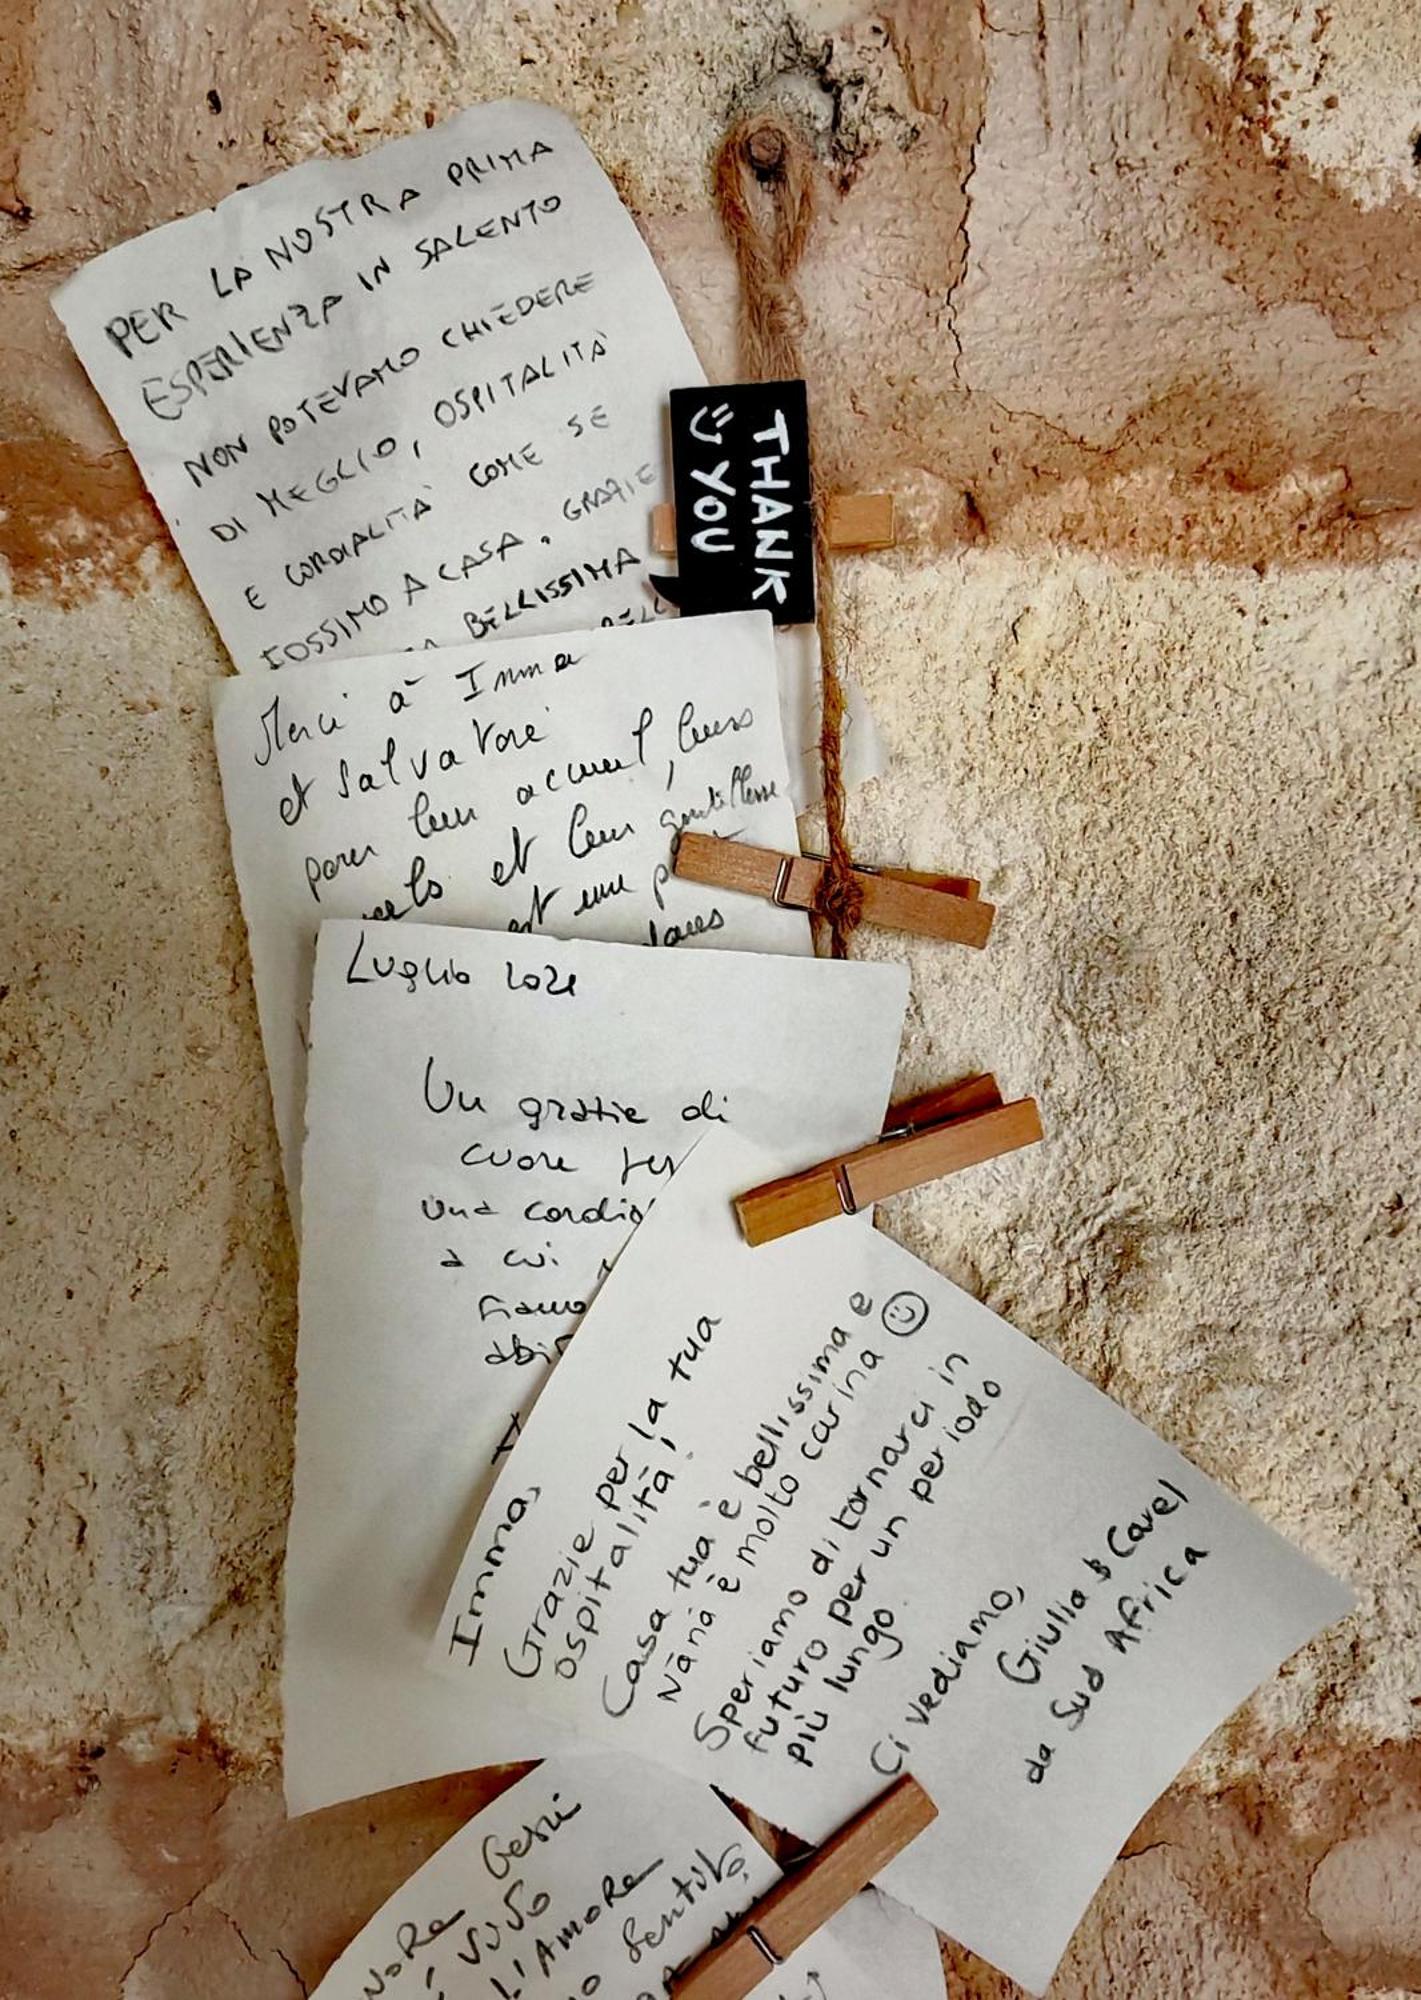 PER LA NOSTRA PRIMA
ESPERIENZA IN SALENTO
NON POTEVAMO CHIEDERE
DI MEGLIO, OSPITALITÀ
E CORDIALITÀ COME SE
FOSSIMO A CASA. GRAZIE
BELLISSIMA
THANK
YOU
Merci à Imma
et Salvatore
pour leur accueil, leurs
et leur gentillesse
est une
dans
Luglio 2021
Un grazie di
cuore per
una
a cui
siamo
Imma,
Grazie per la tua
ospitalità!
Casa tua è bellissima e
Nana è molto carina
Speriamo di tornarci in
futuro per un periodo
più lungo.
Ci vediamo,
Giulia & Cavel
da Sud Africa
Gesù
L'AMORE
sentito